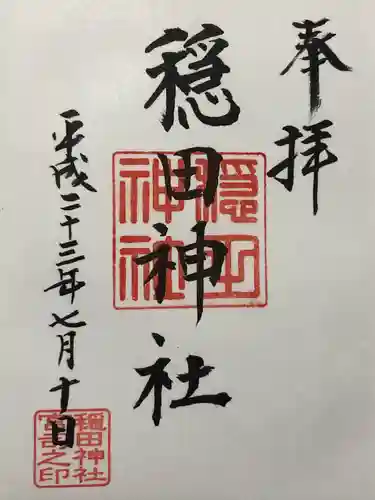 奉拝
穏田神社
平成二十三年七月十日
穏田神社
穏田神社
之印